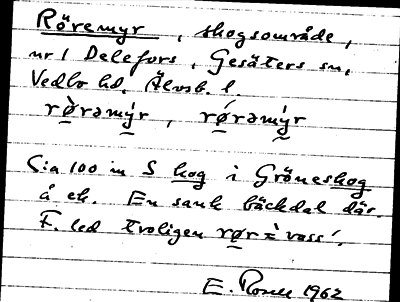 Röremyr, skogsområde,
nr 1 Delefors, Gesäters sn,
Vedbo hd, Älvsb. l.
rø̀rəmýr, rǿrəmýr
C:a 100 m S hog i Gröneshog
å ek. En sank bäckdal där.
F. led troligen rør = 'vass'.
E. 1962